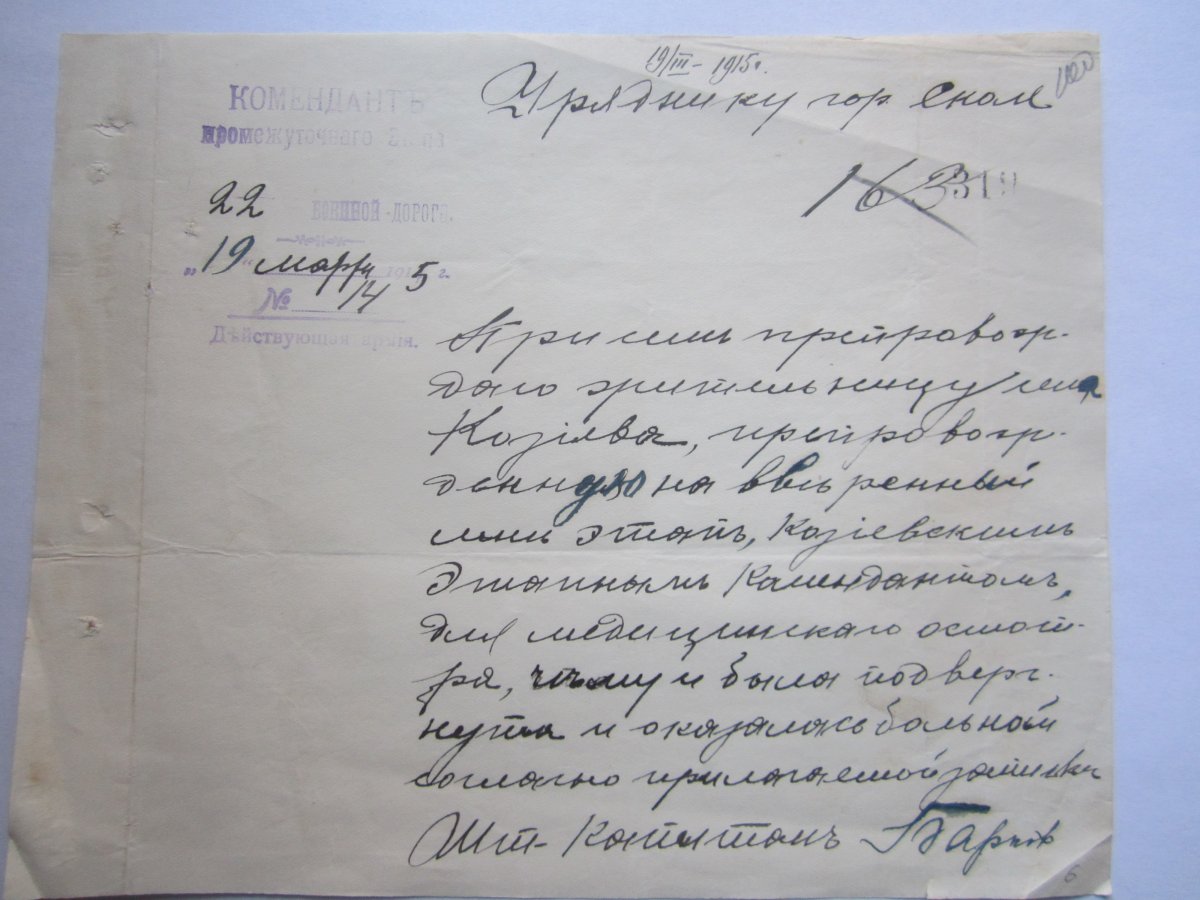 19/III – 1915 г.
100
Уряднику гор. Сколе
КОМЕНДАНТЪ
промежуточного Этапа
22 ВОЕННОЙ ДОРОГѢ.
„19“ марта 1915 г.
№ 14
Дѣйствующая армія.
163
3319
При семъ препровож-
даю жительницу села
Козіова, препровож-
денную на ввѣренный
мнѣ этапъ, Козіевскимъ
Этапнымъ Комендантомъ,
для медицинскаго осмот-
ра, чему и была подверг-
нута и оказалась больной
согласно прилагаемой записки
Шт-Капитанъ
6